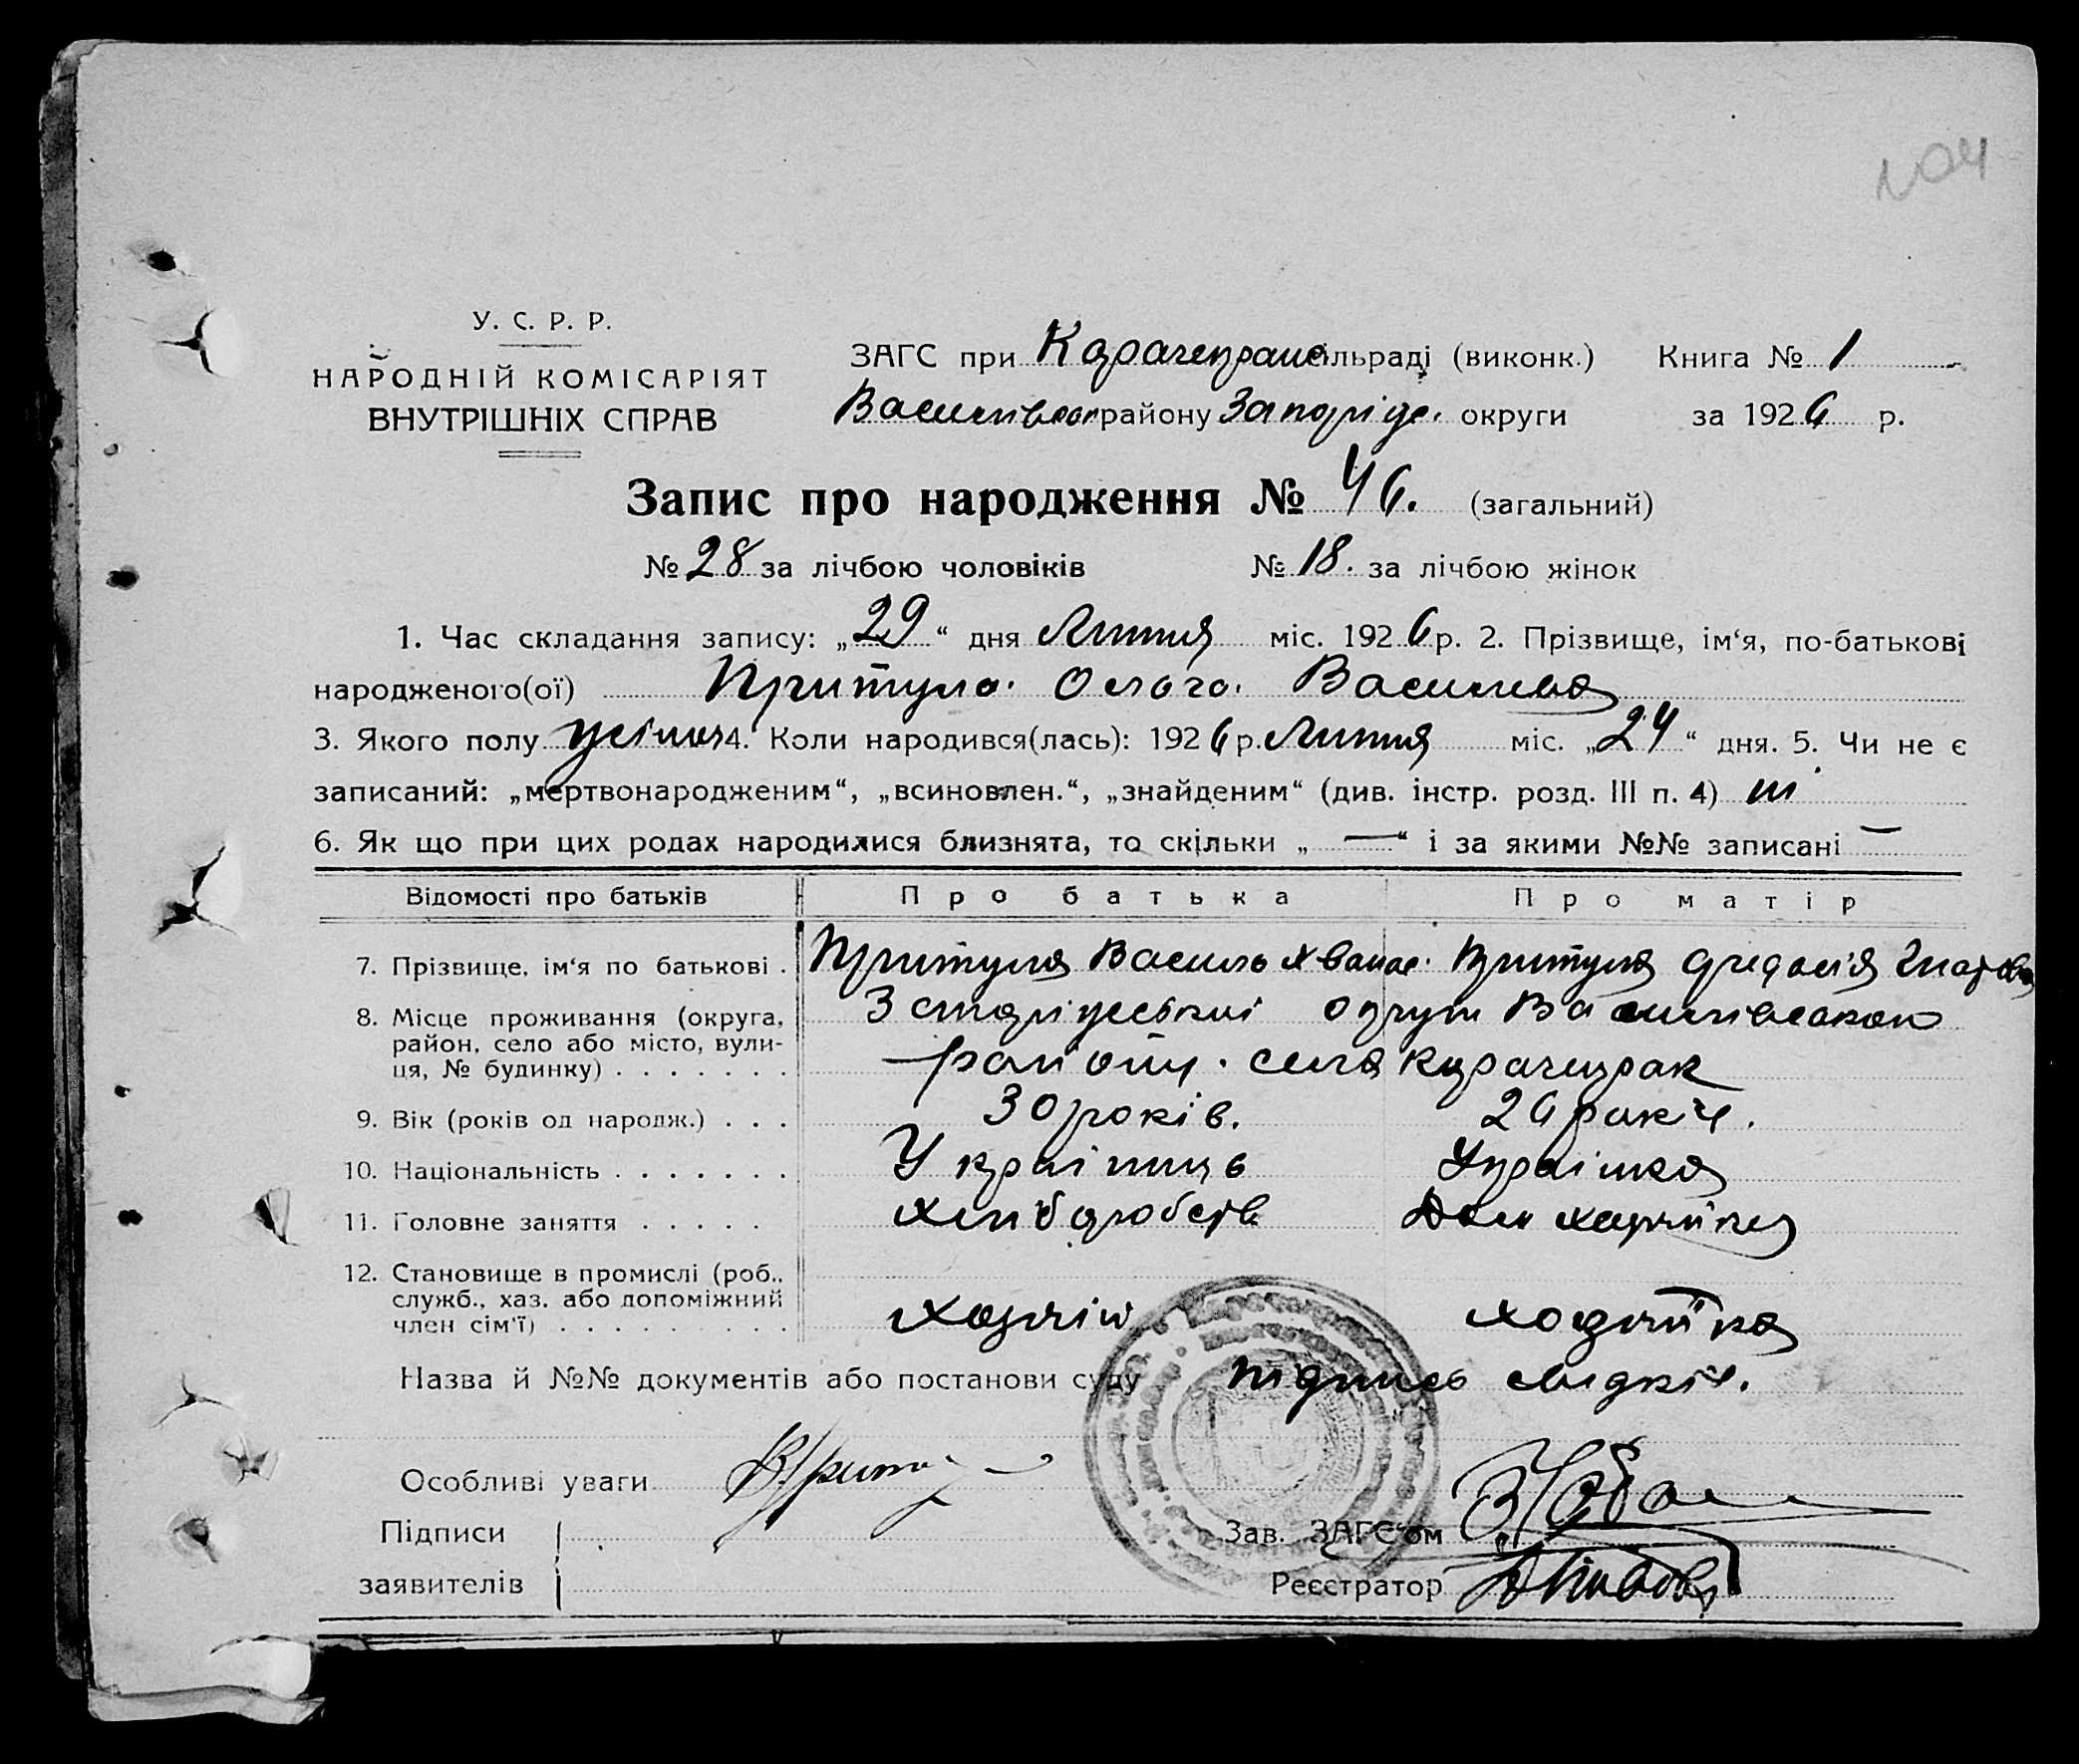 У. С. Р. Р.
НАРОДНІЙ КОМІСАРІЯТ
ВНУТРІШНІХ СПРАВ
ЗАГС при Карачекрак сільраді (виконк.) Книга № 1
Василівськ району Запоріж. округи за 1926 р.
Запис про народження № 46. (загальний)
№ 28 за лічбою чоловіків № 18. за лічбою жінок
1. Час складання запису: „29“ дня Липня міс. 1926 р. 2. Прізвище, ім‘я, по-батькові
народженого(ої) Притула Ольга Васильева
3. Якого полу 4. Коли народився(лась): 1926 р. Липня міс. „24“ дня. 5. Чи не є
записаний: „мертвонародженим“, „всиновлен.“, „знайденим“ (див. інстр. розд. III п. 4) ні
6. Як що при цих родах народилися близнята, то скільки „—“ і за якими №№ записані —
Відомості про батьків Про батька Про матір
7. Прізвище, ім‘я по батькові . Притула Василь Хванас. Притула Федосія
8. Місце проживання (округа, район, село або місто, вулиця, № будинку) . . . . . . . округи Василівського
району. села Карачекрак
9. Вік (років од народж.) . . . 30 років. 26 років.
10. Національність . . . . . . . Українець Українка
11. Головне заняття . . . . . Хліборобств Дом хазяйка
12. Становище в промислі (роб., служб., хаз. або допоміжний член сім‘ї) . . . . . . . . Хазяін хозяйка
Назва й №№ документів або постанови суду підпись свидків.
Особливі уваги
Підписи
заявителів
Зав. ЗАГС‘ом
Реєстратор